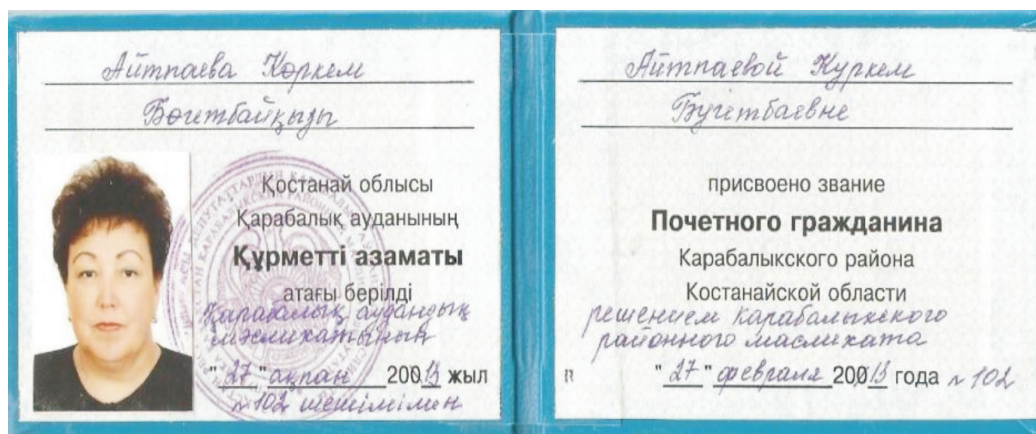 Айтпаева Көркем
Бөгетбайқызы
Қостанай облысы
Қарабалық ауданының
Құрметті азаматы
атағы берілді
Қарабалық аудандық
мәслихатының
"27" ақпан 20013 жыл
№ 102 шешімімен
Айтпаевой Куркем
Бугетбаевне
присвоено звание
Почетного гражданина
Карабалыкского района
Костанайской области
решением Карабалыкского
районного маслихата
"27" февраля 20013 года № 102